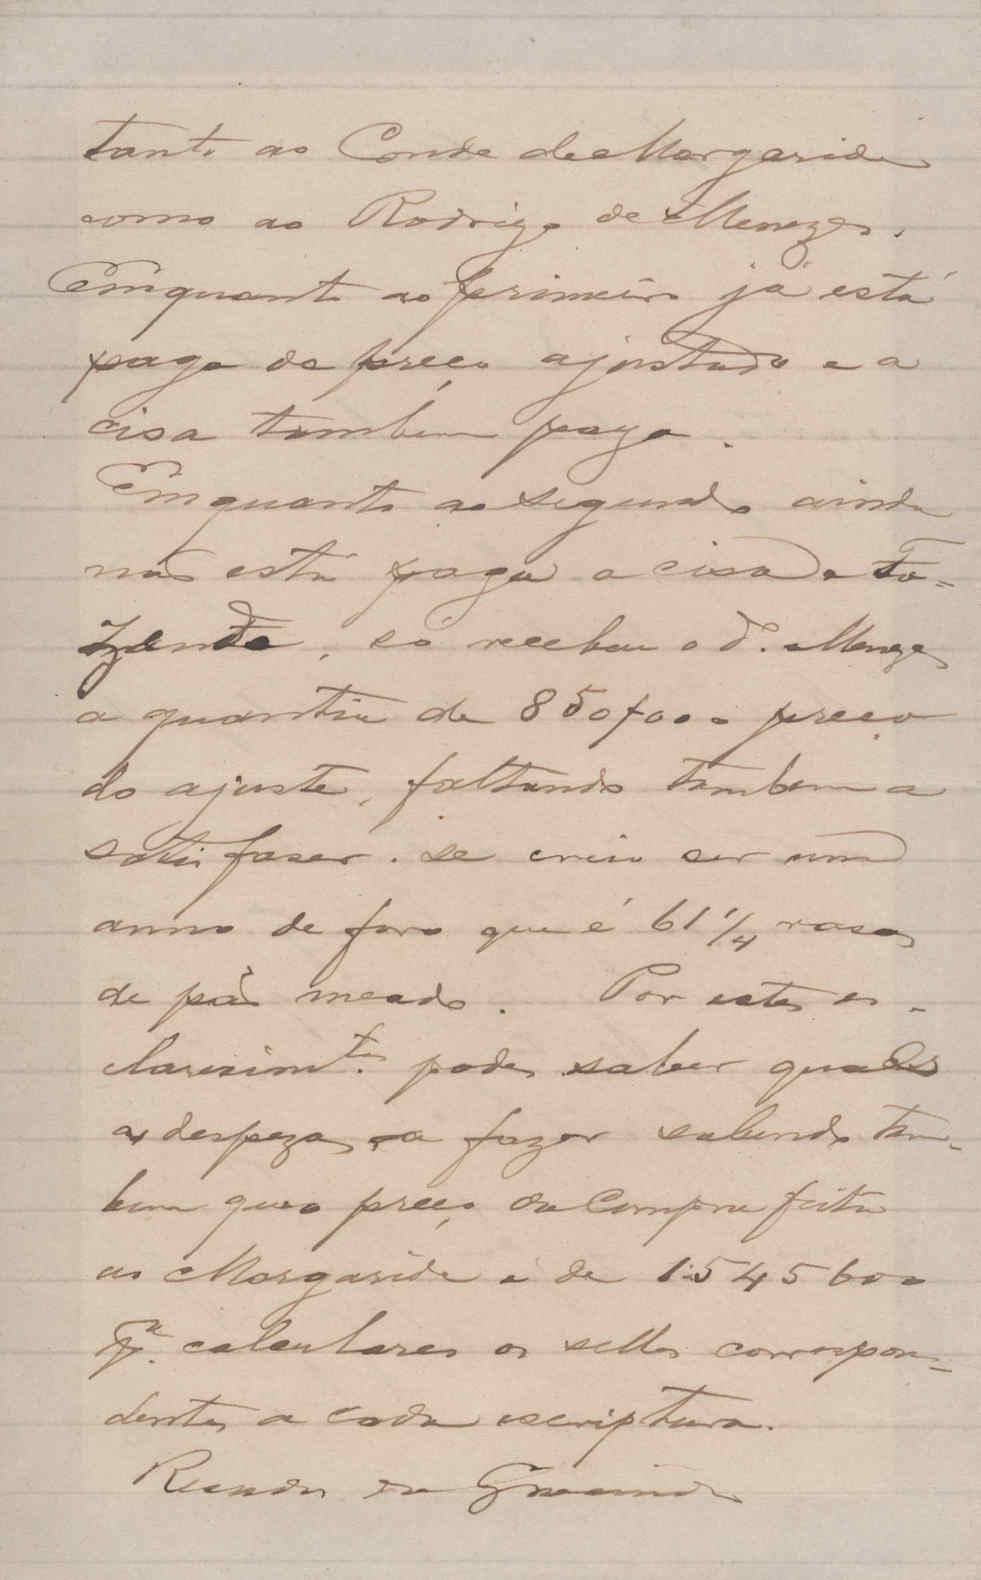 tanto ao Conde de Margaride
como ao Rodrigo de Menezes.
Emquanto ao primeiro já está
pago do preço ajustado e a
cisa tambem paga.
Emquanto ao segundo ainda
não está paga a cisa a Fa-
zenda, só recebeu o d. Menezes
a quantia de 850$000 preço
do ajuste, faltando tambem a
satisfaser. se creio ser um
anno de foro que é 61 1/4 rasas
de pão meado. Por estes es-
clarecim.tos podes saber quaes
as despezas a fazer sabendo tam-
bem que o preço da compra feita
ao Margaride é de 1:545600
p.a calculares os sellos correspon-
dentes a cada escriptura.
Recados da